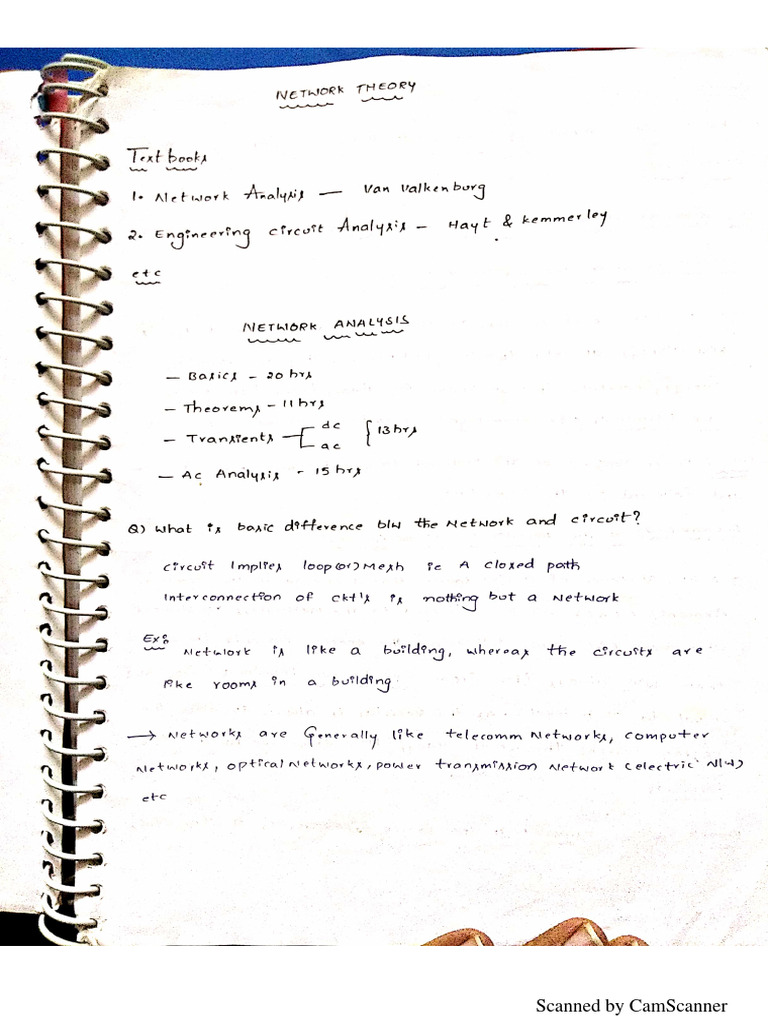 NETWORK THEORY
Textbooks
1. Network Analysis — Van Valkenburg
2. Engineering circuit Analysis — Hayt & kemmerley
etc
NETWORK ANALYSIS
— Basics - 20 hrs
— Theorems - 11 hrs
— Transients dc ac } 13 hrs
— Ac Analysis - 15 hrs
Q) What is basic difference b/w the Network and circuit?
circuit Implies loop (or) Mesh ie A closed path
Interconnection of ckt's is nothing but a Network
Ex:
Network is like a building, whereas the circuits are
like rooms in a building
→ Networks are Generally like telecomm Networks, computer
Networks, optical Networks, power transmission Network (electric N/w)
etc
Scanned by CamScanner